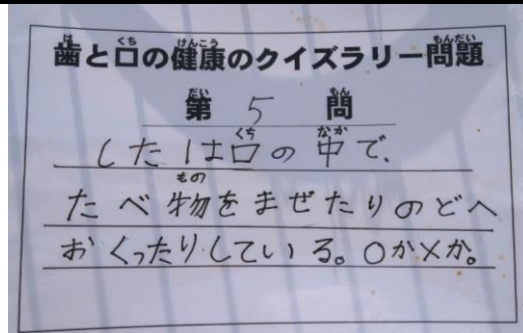 歯と口の健康のクイズラリー問題
第 5 問
したは口の中で、
たべ物をまぜたりのどへ
おくったりしている。○か×か。